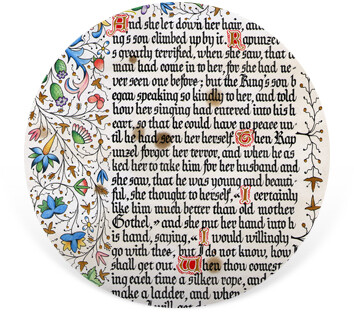 And she let down her hair, and
ng's son climbed up by it. Rapunzel
s greatly terrified, when she saw, that
man had come in to her, for she had ne
ver seen one before; but the King's son b
egan speaking so kindly to her, and told
how her singing had entered into his h
eart, so that he could have no peace un
til he had seen her herself. Then Rap
unzel forgot her terror, and when he as
ked her to take him for her husband and
she saw, that he was young and beauti
ful, she thought to herself, "I certainly
like him much better than old mother
Gothel," and she put her hand into h
is hand, saying, "I would willingly
go with thee, but I do not know, how
shall get out. When thou comest
ing each time a silken rope, and
make a ladder, and when
I will get